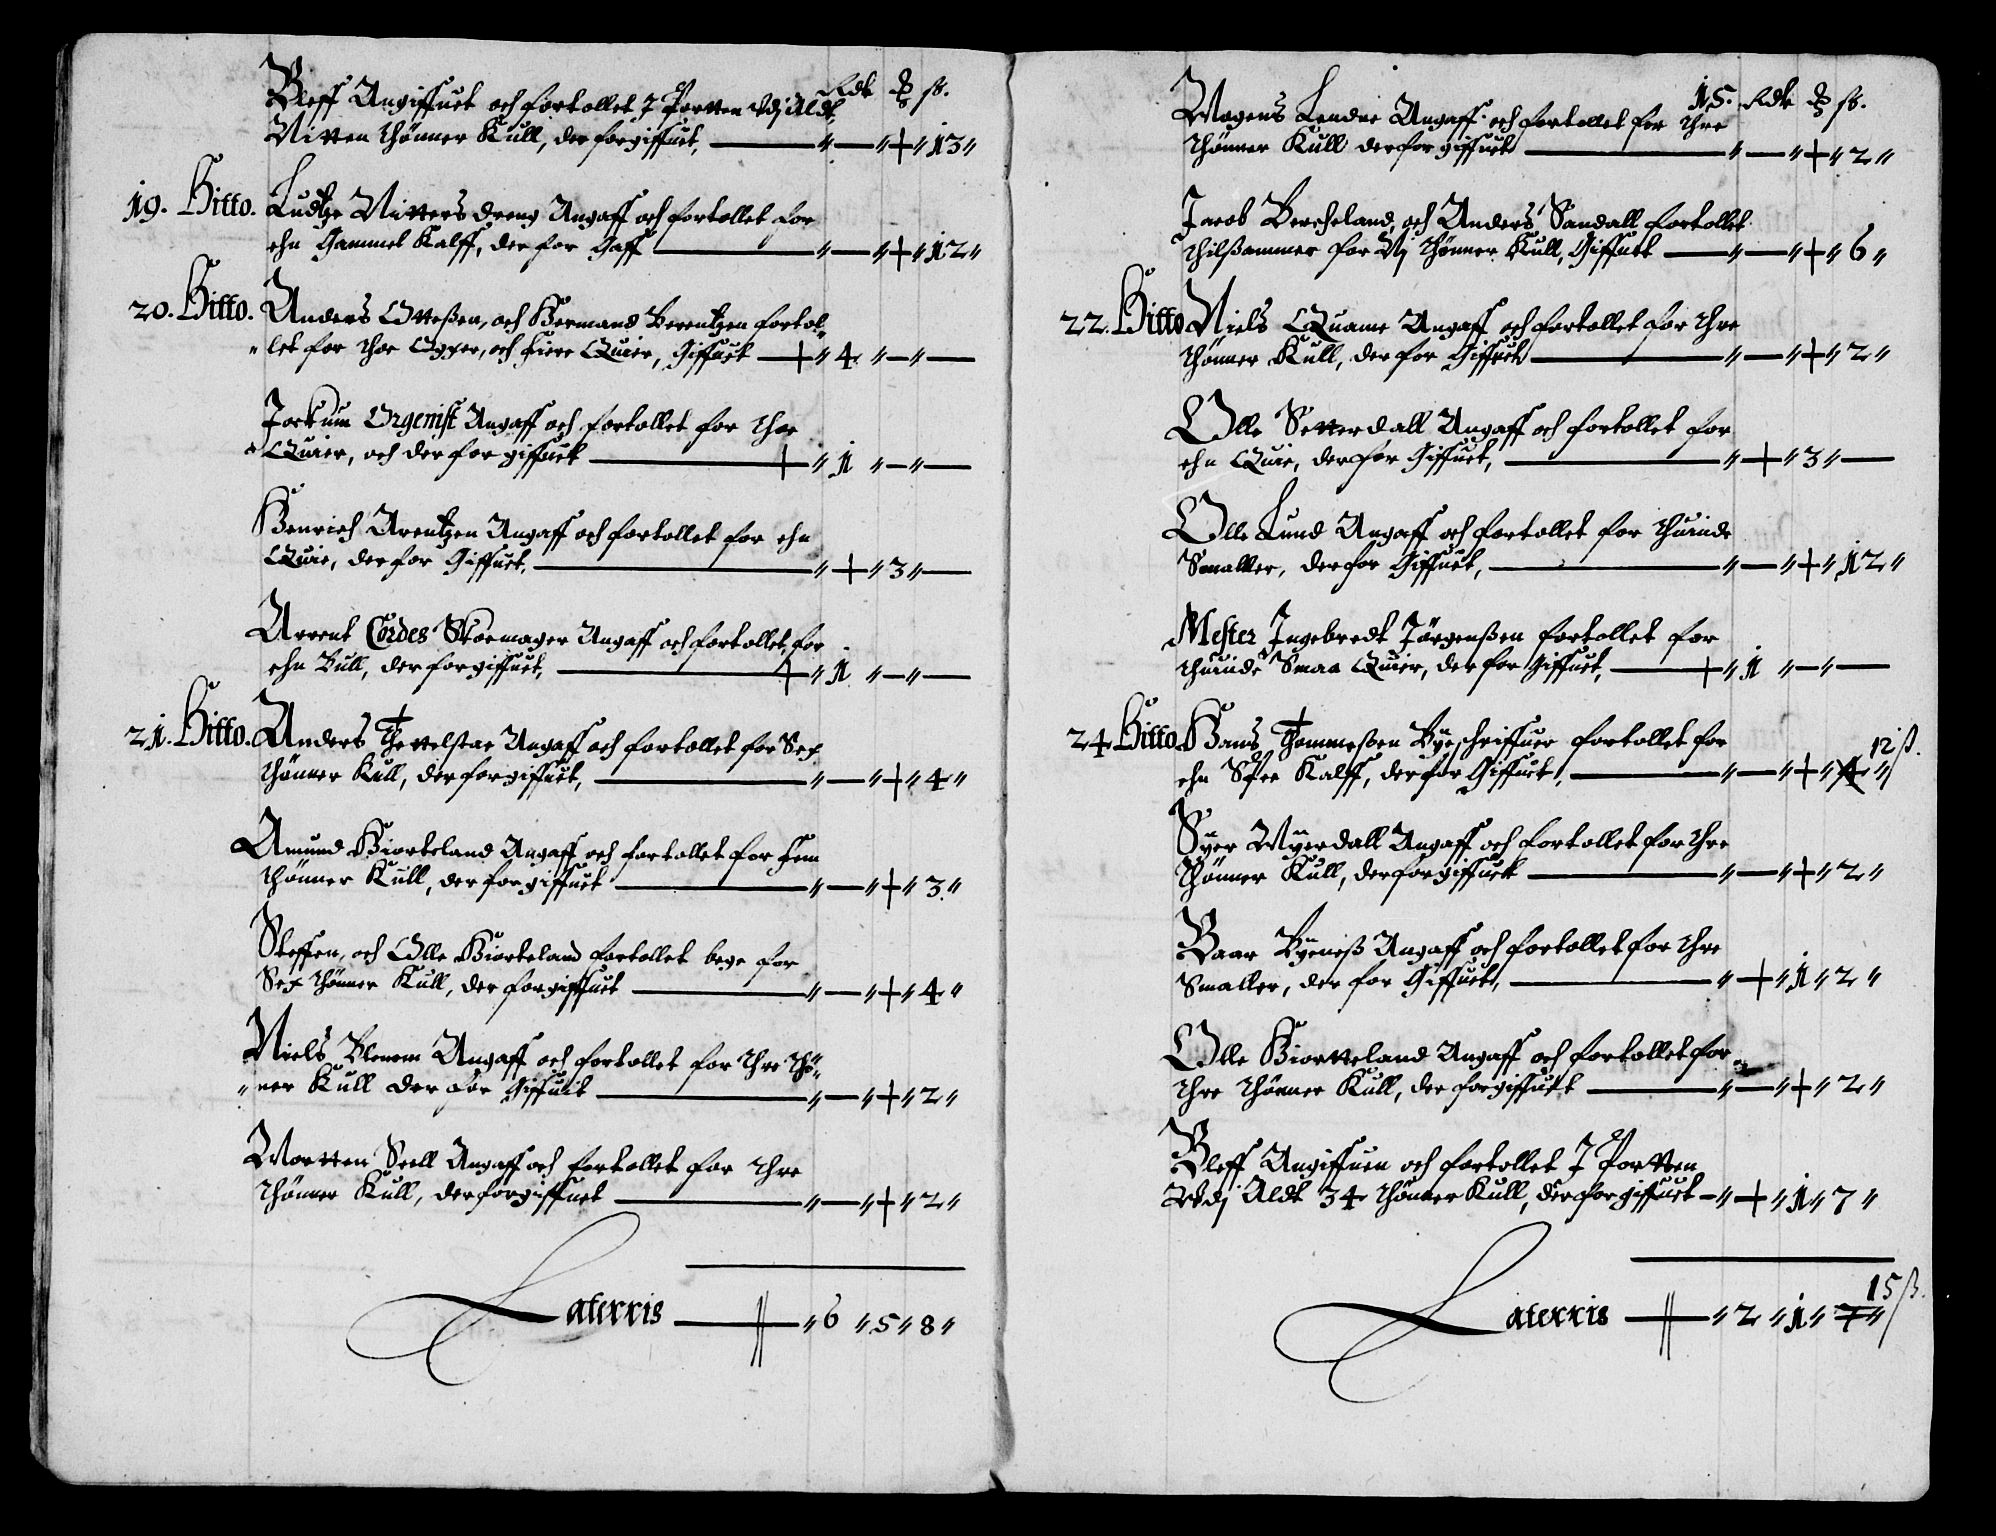 Rdr ₰ sk.
Bleff Angiffuet och fortollet I Portten Udj Aldt,
Nitten thönner Kull, der for giffuet, — " — " + " 13 "
19. Ditto. Ludtze Nitters dreng Angaff och fortollet for
ehn Gammel Kalff, der for Gaff — " — " + " 12 "
20. Ditto. Anders Otteßen, och Hermand Berentzen fortol-
" let for thoe Oxer, och fiere Quier, Giffuet — + " 4 " — " —
Jockum Orgenist Angaff och fortollet for thoe
Quier, och der for giffuet — + " 1 " — " —
Henrich Arentzen Angaff och fortollet for ehn
Quie, der for Giffuet, — " + " 3 " —
Arrent Cordes Skoemager Angaff och fortollet, for
ehn Bull, der for giffuet, — + " 1 " — " —
21. Ditto. Anders Thettelstae Angaff och fortollet for Sex
thönner Kull, der for giffuet, — " — " + " 4 "
Amund Hiorteland Angaff och fortollet for fem
thönner Kull, der for giffuet — " — " + " 3 "
Steffen, och Olle Hiorteland fortollet bege for
Sex thönner Kull, der for giffuet — " — " + " 4 "
Niels Angaff och fortollet for thre thö-
" ner Kull der for Giffuet — " — " + " 2 "
Mortten Seell Angaff och fortollet for thre
thönner Kull, der for giffuet — " — " + " 2 "
Laterris — " 6 " 5 " 8 "
15. Rdr ₰ sk.
Mogens Lendue Angaff och fortollet for thre
thönner Kull der for giffuet — " — " + " 2 "
Jacob Bercheland, och Anders Sandall fortollet
thilßammer for Vj thönner Kull, Giffuet — " — " + " 6 "
22. Ditto Niels Quame Angaff och fortollet for thre
thönner Kull, der for Giffuet — " — " + " 2 "
Olle Setterdall Angaff och fortollet for
ehn Quie, der for Giffuet, — " + " 3 " —
Olle Lund Angaff och fortollet for thuinde
Smaller, der for Giffuet, — " — " + " 12 "
Mester Ingebredt Jörgenßen fortollet for
thuinde Smaa Quier, der for Giffuet, — + " 1 " — " —
24. Ditto. Hans Thommeßen Byeschriffuer fortollet for
12 ß.
ehn Kalff, der for Giffuet, — " — " + " 4 "
Syer Myerdall Angaff och fortollet for thre
thönner Kull, der for giffuet — " — " + " 2 "
Baar Angaff och fortollet for thre
Smaller, der for Giffuet, — " + " 1 " 2 "
Olle Hiortteland Angaff och fortollet for
thre thönner Kull, der for giffuet — " — " + " 2 "
Bleff Angiffuen och fortollet I Portten
Udj Aldt 34 thönner Kull, der for giffuet — " + " 1 " 7 "
15 ß.
Laterris — " 2 " 1 " 7 "